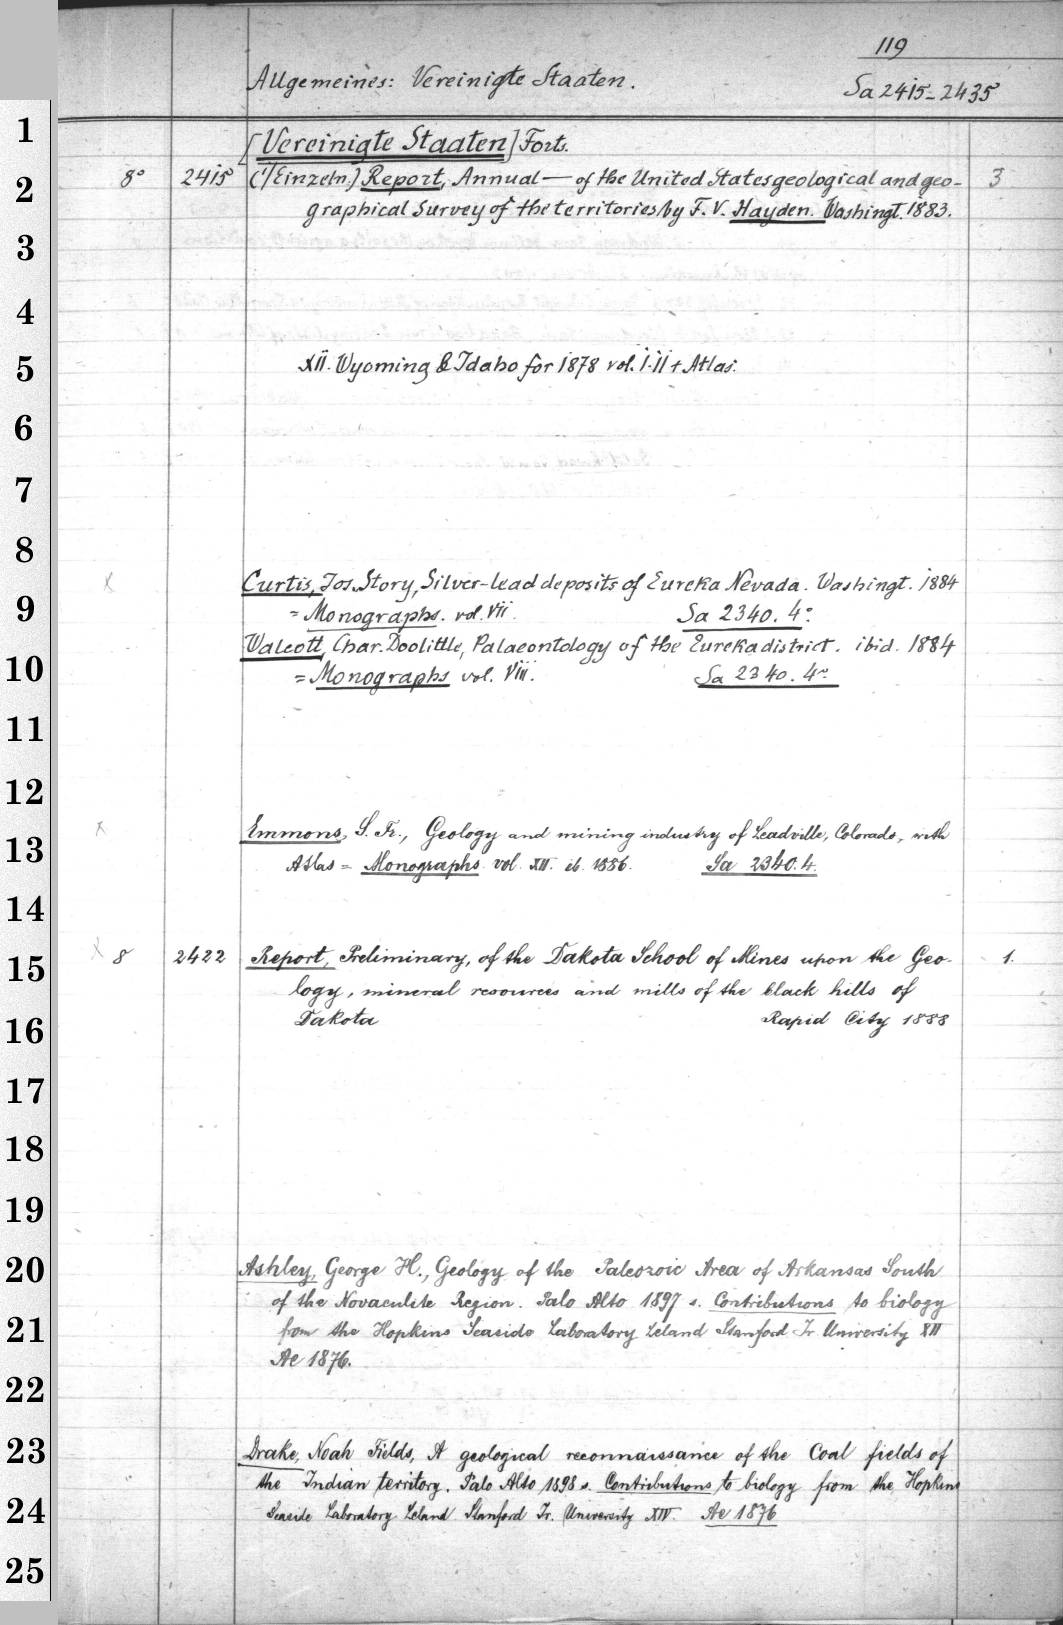 119
Allgemeines: Vereinigte Staaten. Sa 2415-2435
[Vereinigte Staaten] Forts.
8° 2415 (1/Einzeln.) Report, Annual — of the United States geological and geo- 3
graphical Survey of the territories by F. V. Hayden. Washingt. 1883.
XII. Wyoming & Idaho for 1878 vol. I. II + Atlas.
x Curtis, Jos. Story, Silver-lead deposits of Eureka Nevada. Washingt. 1884
= Monographs. vol. VII. Sa 2340. 4°
Walcott, Char. Doolittle, Palaeontology of the Eureka district. ibid. 1884
= Monographs vol. VIII. Sa 2340. 4°
x Emmons, S. Fr., Geology and mining industry of Leadville, Colorado, with
Atlas = Monographs vol. XII. ib. 1886. Sa 2340. 4.
x 8 2422 Report, Preliminary, of the Dakota School of Mines upon the Geo- 1.
logy, mineral resources and mills of the black hills of
Dakota Rapid City 1888
Ashley, George H., Geology of the Paleozoic Area of Arkansas South
of the Novaculite Region. Palo Alto 1897 s. Contributions to biology
from the Hopkins Seaside Laboratory Leland Stanford Jr. University XII
Ae 1876.
Drake, Noah Fields, A geological reconnaissance of the Coal fields of
the Indian territory. Palo Alto 1898 s. Contributions to biology from the Hopkins
Seaside Laboratory Leland Stanford Jr. University XIV. Ae 1876
1
2
3
4
5
6
7
8
9
10
11
12
13
14
15
16
17
18
19
20
21
22
23
24
25